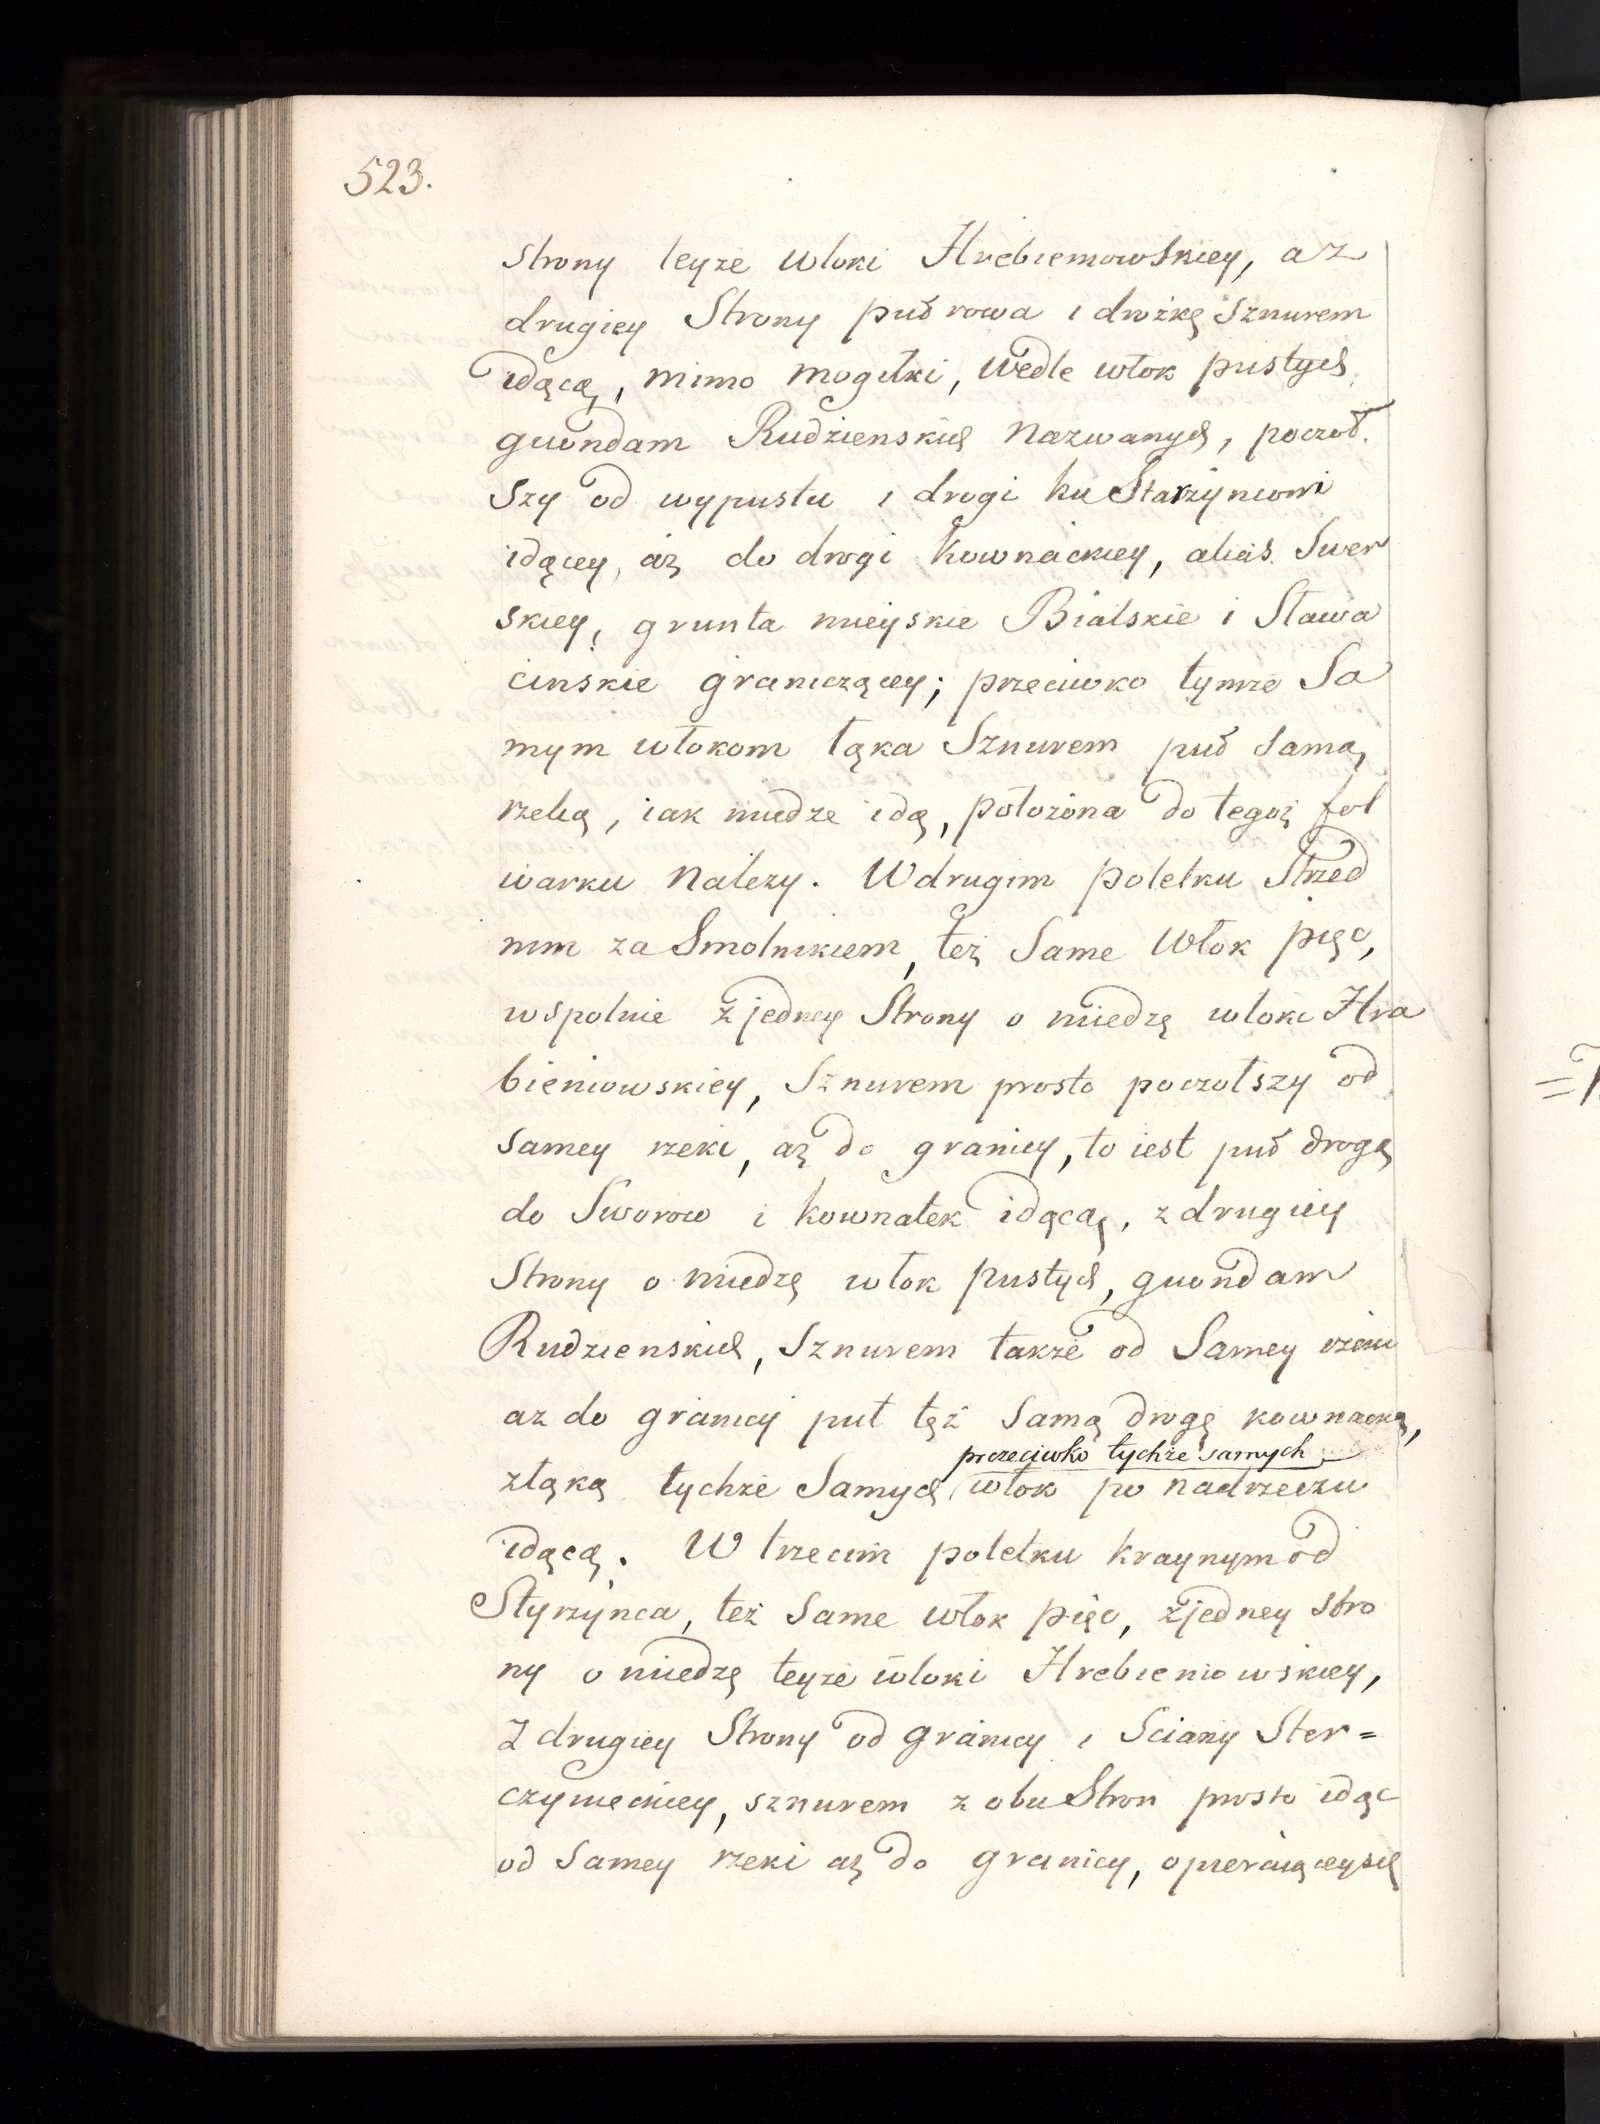 523.
strony teyże włoki Hrebiemowskiey, a z
drugiey Strony puł rowa i drożkę Sznurem
idącą, mimo mogiłki, wedle włok pustych
quondam Rudzienskich Nazwanych, począł.
Szy od wypustu i drogi ku Starzyncowi
idącey, aż do drogi Kownackiey, alias Swer
skiey, grunta mieyskie Bialskie i Sława
cinskie graniczącey; przeciwko tymże Sa
mym włokom łąka Sznurem puł samą
rzeką, iak miedze idą, położona do tegoż fol
warku Należy. W drugim poletku Strzed
nim za Smolnikiem, też Same Włok pięc,
wspolnie z jedney Strony o miedzę włoki Hra
bieniowskiey, Sznurem prosto począłszy od
samey rzeki, aż do granicy, to iest puł drogą
do Sworow i kownatek idącą, z drugiey
Strony o miedzę włok pustych, quondam
Rudzienskich, Sznurem także od Samey rzeki
az do granicy puł tęż Samą drogę kownacką,
przeciwko tychże samych
złąką tychże Samych włok po nadrzeczu
idącą. W trzecim poletku kraynym od
Styrzynca, też Same włok pięc, z jedney stro
ny o miedzę teyże włoki Hrebieniowskiey,
Z drugiey Strony od granicy i Sciany Ster=
czynieckiey, sznurem z obu Stron prosto idąc
od Samey rzeki aż do granicy, opieraiąceysię